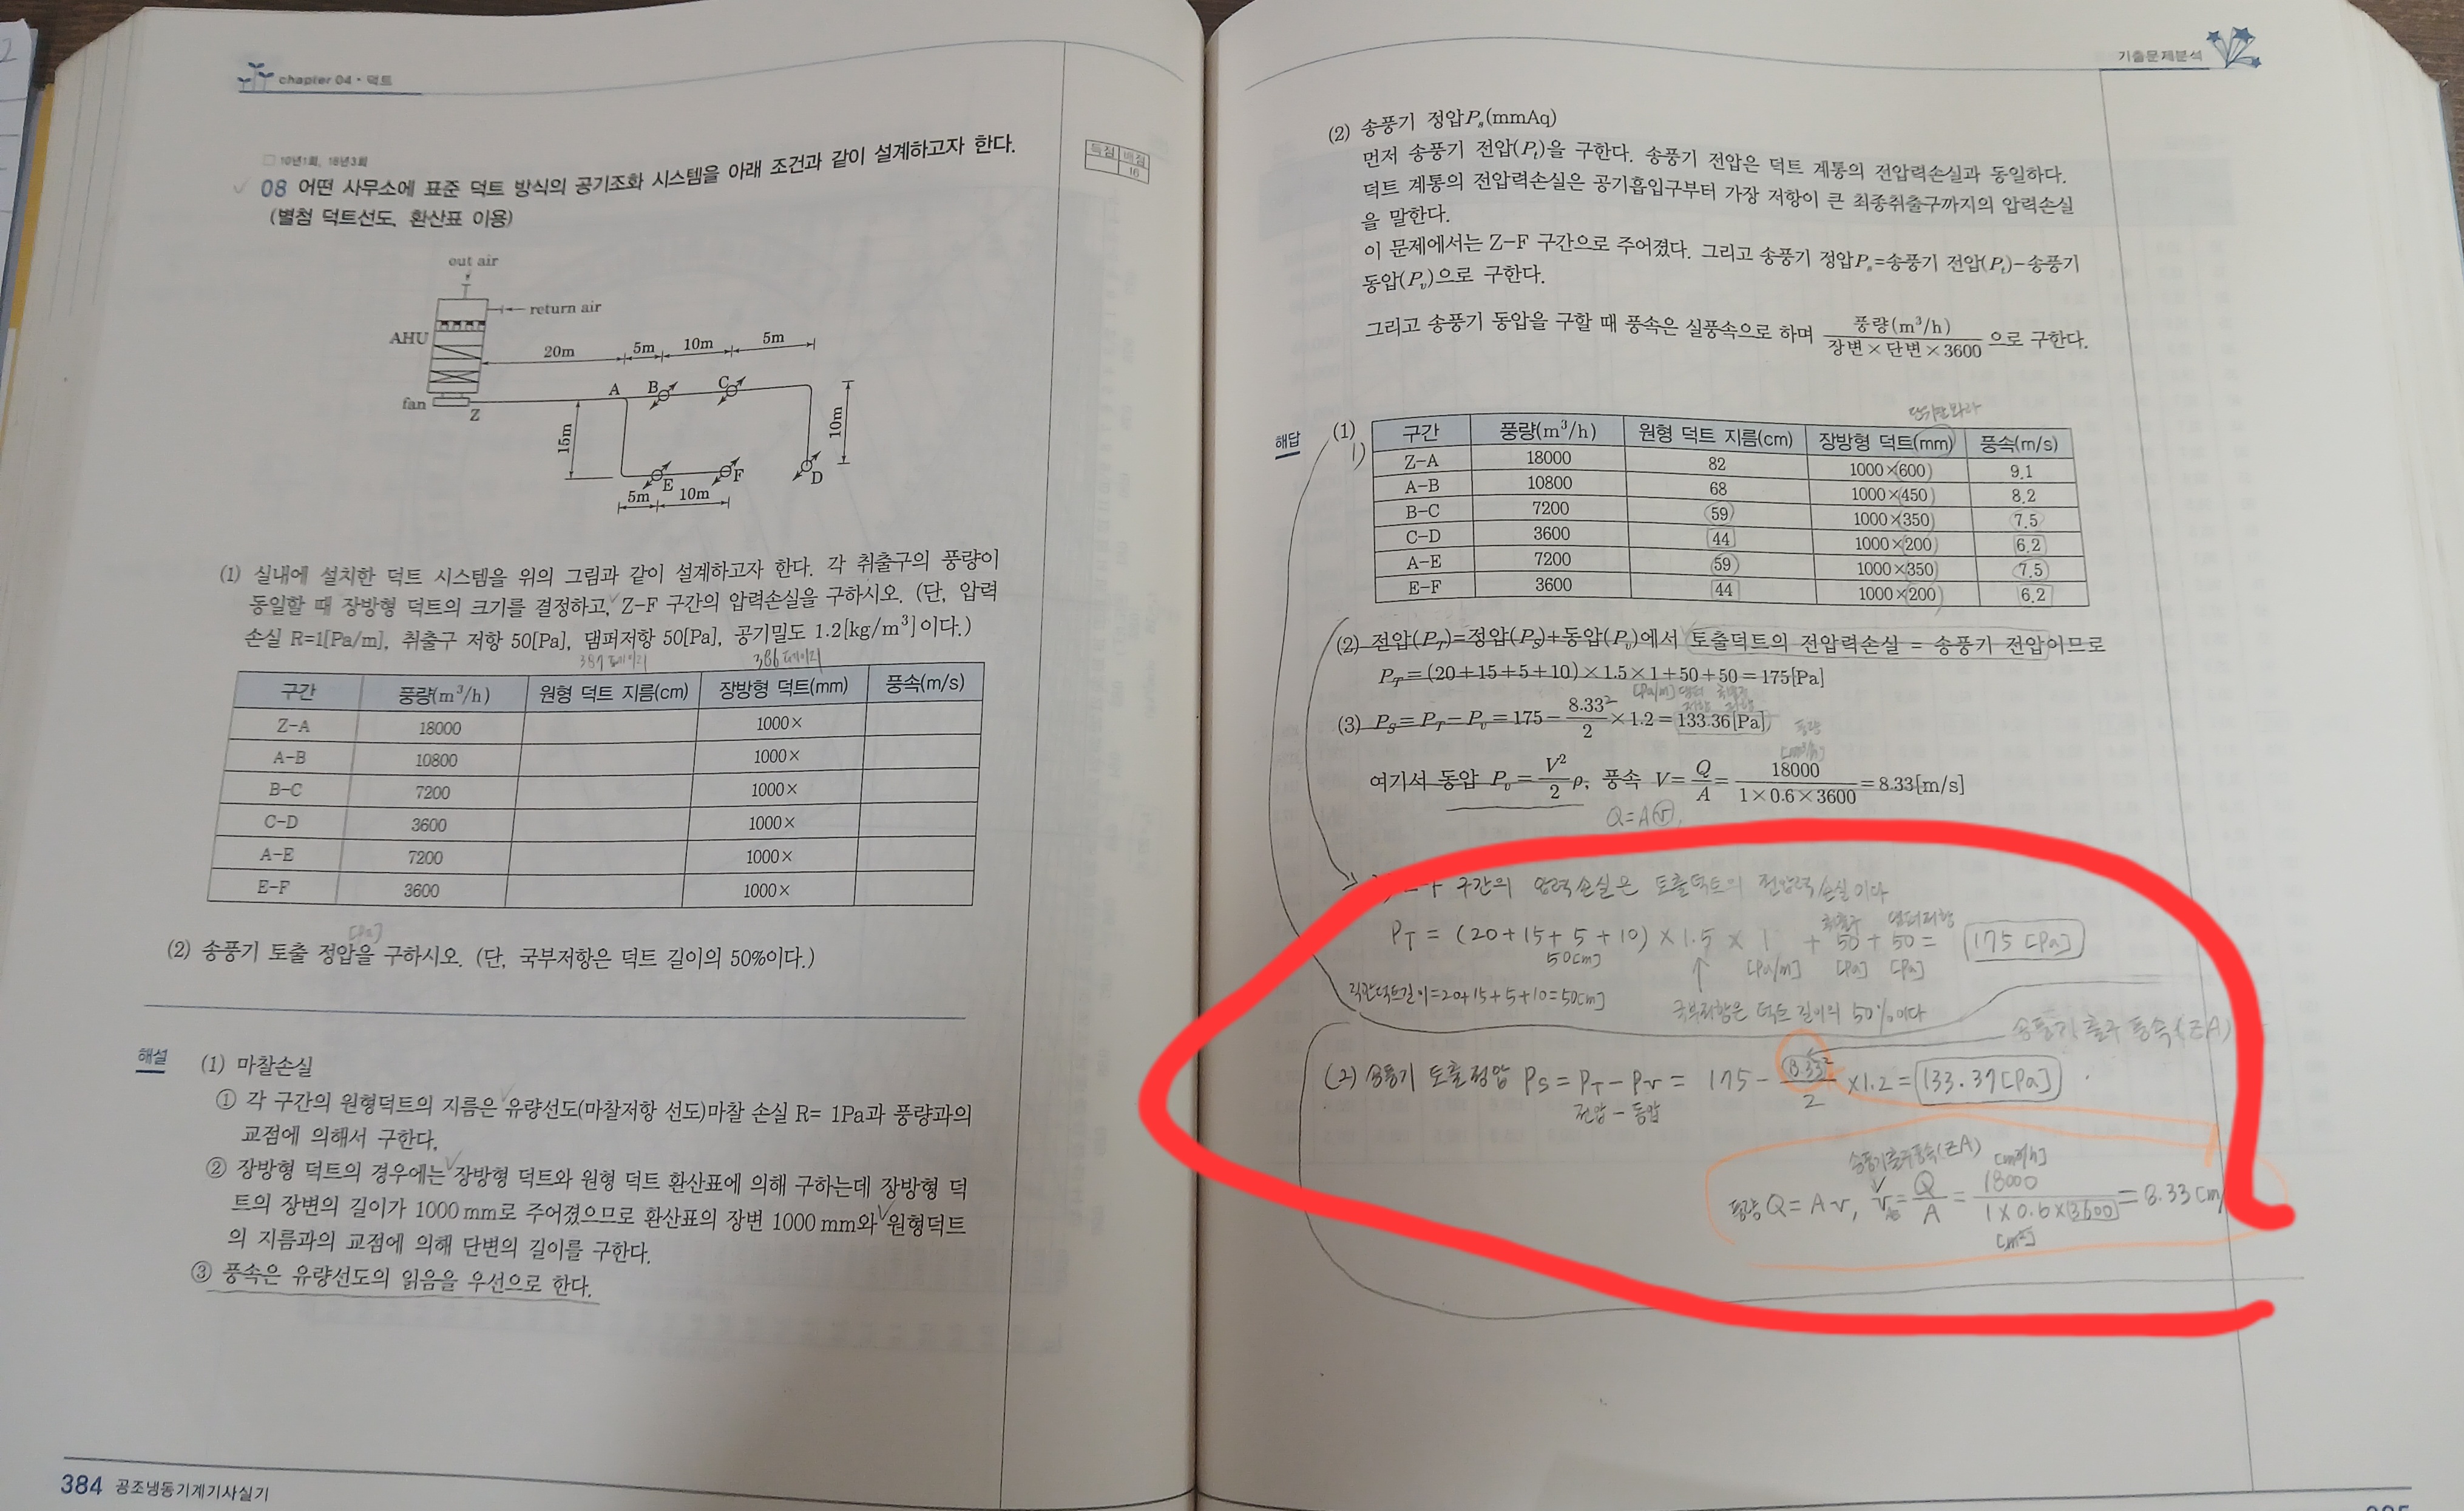 chapter 04 · 덕트
□ 10년1회, 18년3회
08 어떤 사무소에 표준 덕트 방식의 공기조화 시스템을 아래 조건과 같이 설계하고자 한다.
(별첨 덕트선도, 환산표 이용)
득점 배점
16
out air
return air
AHU
20m 5m 10m 5m
A B C
fan
Z
15m
10m
E F D
5m 10m
(1) 실내에 설치한 덕트 시스템을 위의 그림과 같이 설계하고자 한다. 각 취출구의 풍량이
동일할 때 장방형 덕트의 크기를 결정하고, Z-F 구간의 압력손실을 구하시오. (단, 압력
손실 R=1[Pa/m], 취출구 저항 50[Pa], 댐퍼저항 50[Pa], 공기밀도 1.2[kg/m³]이다.)
387페이지 386페이지
구간 풍량(m³/h) 원형 덕트 지름(cm) 장방형 덕트(mm) 풍속(m/s)
Z-A 18000 1000×
A-B 10800 1000×
B-C 7200 1000×
C-D 3600 1000×
A-E 7200 1000×
E-F 3600 1000×
[Pa]
(2) 송풍기 토출 정압을 구하시오. (단, 국부저항은 덕트 길이의 50%이다.)
해설
(1) 마찰손실
① 각 구간의 원형덕트의 지름은 유량선도(마찰저항 선도)마찰 손실 R= 1Pa과 풍량과의
교점에 의해서 구한다.
② 장방형 덕트의 경우에는 장방형 덕트와 원형 덕트 환산표에 의해 구하는데 장방형 덕
트의 장변의 길이가 1000mm로 주어졌으므로 환산표의 장변 1000mm와 원형덕트
의 지름과의 교점에 의해 단변의 길이를 구한다.
③ 풍속은 유량선도의 읽음을 우선으로 한다.
384 공조냉동기계기사실기
기출문제분석
(2) 송풍기 정압Ps(mmAq)
먼저 송풍기 전압(Pt)을 구한다. 송풍기 전압은 덕트 계통의 전압력손실과 동일하다.
덕트 계통의 전압력손실은 공기흡입구부터 가장 저항이 큰 최종취출구까지의 압력손실
을 말한다.
이 문제에서는 Z-F 구간으로 주어졌다. 그리고 송풍기 정압Ps=송풍기 전압(Pt)-송풍기
동압(Pv)으로 구한다.
그리고 송풍기 동압을 구할 때 풍속은 실풍속으로 하며 풍량(m³/h) / 장변×단변×3600 으로 구한다.
해답
(1)
1)
구간 풍량(m³/h) 원형 덕트 지름(cm) 장방형 덕트(mm) 풍속(m/s)
Z-A 18000 82 1000×600 9.1
A-B 10800 68 1000×450 8.2
B-C 7200 59 1000×350 7.5
C-D 3600 44 1000×200 6.2
A-E 7200 59 1000×350 7.5
E-F 3600 44 1000×200 6.2
(2) 전압(PT)=정압(PS)+동압(Pv)에서 토출덕트의 전압력손실 = 송풍기 전압이므로
PT=(20+15+5+10)×1.5×1+50+50=175[Pa]
[Pa/m] 댐퍼저항 취출구저항
(3) PS=PT-Pv=175-8.33²/2×1.2=133.36[Pa]
풍량
[m³/h]
여기서 동압 Pv=V²/2 ρ, 풍속 V=Q/A=18000/1×0.6×3600=8.33[m/s]
Q=AV.
구간의 압력손실은 토출덕트의 전압력손실이다
취출구 댐퍼저항
PT = (20+15+5+10)×1.5×1 + 50+50= 175[Pa]
50[m] [Pa/m] [Pa] [Pa]
직관덕트길이=20+15+5+10=50[m]
국부저항은 덕트 길이의 50%이다
송풍기 출구 풍속(ZA)
(2) 송풍기 토출정압 PS=PT-PV= 175-(8.33)²/2 ×1.2=133.37[Pa]
전압-동압
송풍기출구풍속(ZA) [m³/h]
풍량 Q=AV, V=Q/A=18000/1×0.6×3600=8.33[m/
[m²]